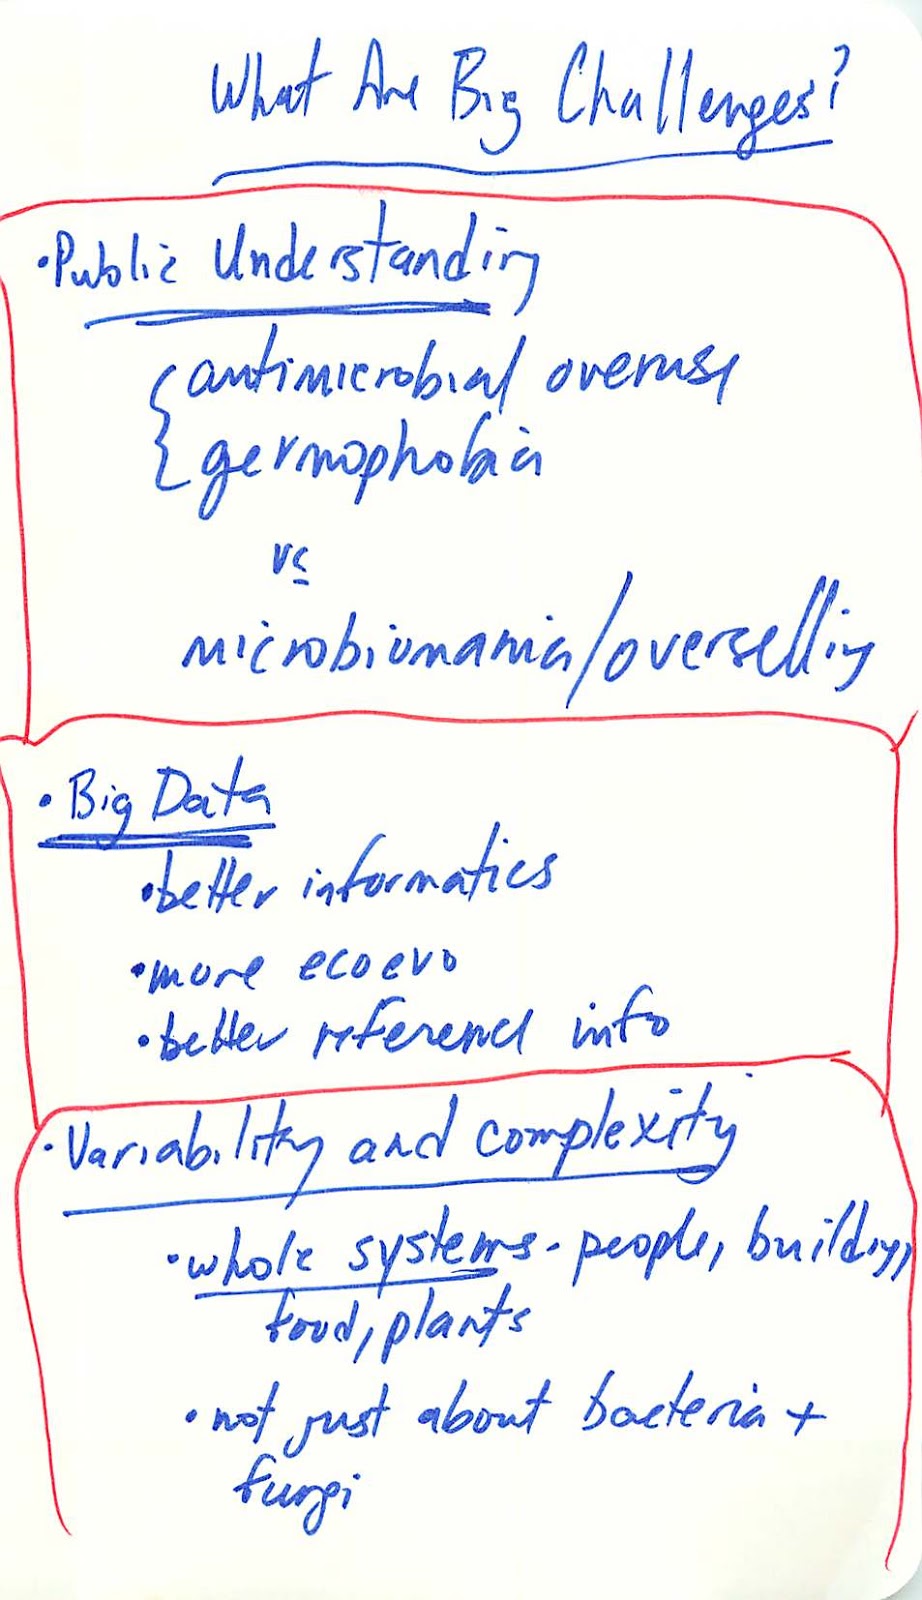 What Are Big Challenges?
• Public Understanding
{ antimicrobial overuse
{ germophobia
vs
microbiomania/overselling
• Big Data
• better informatics
• more ecoevo
• better reference info
• Variability and complexity
• whole systems - people, buildings,
food, plants
• not just about bacteria +
fungi